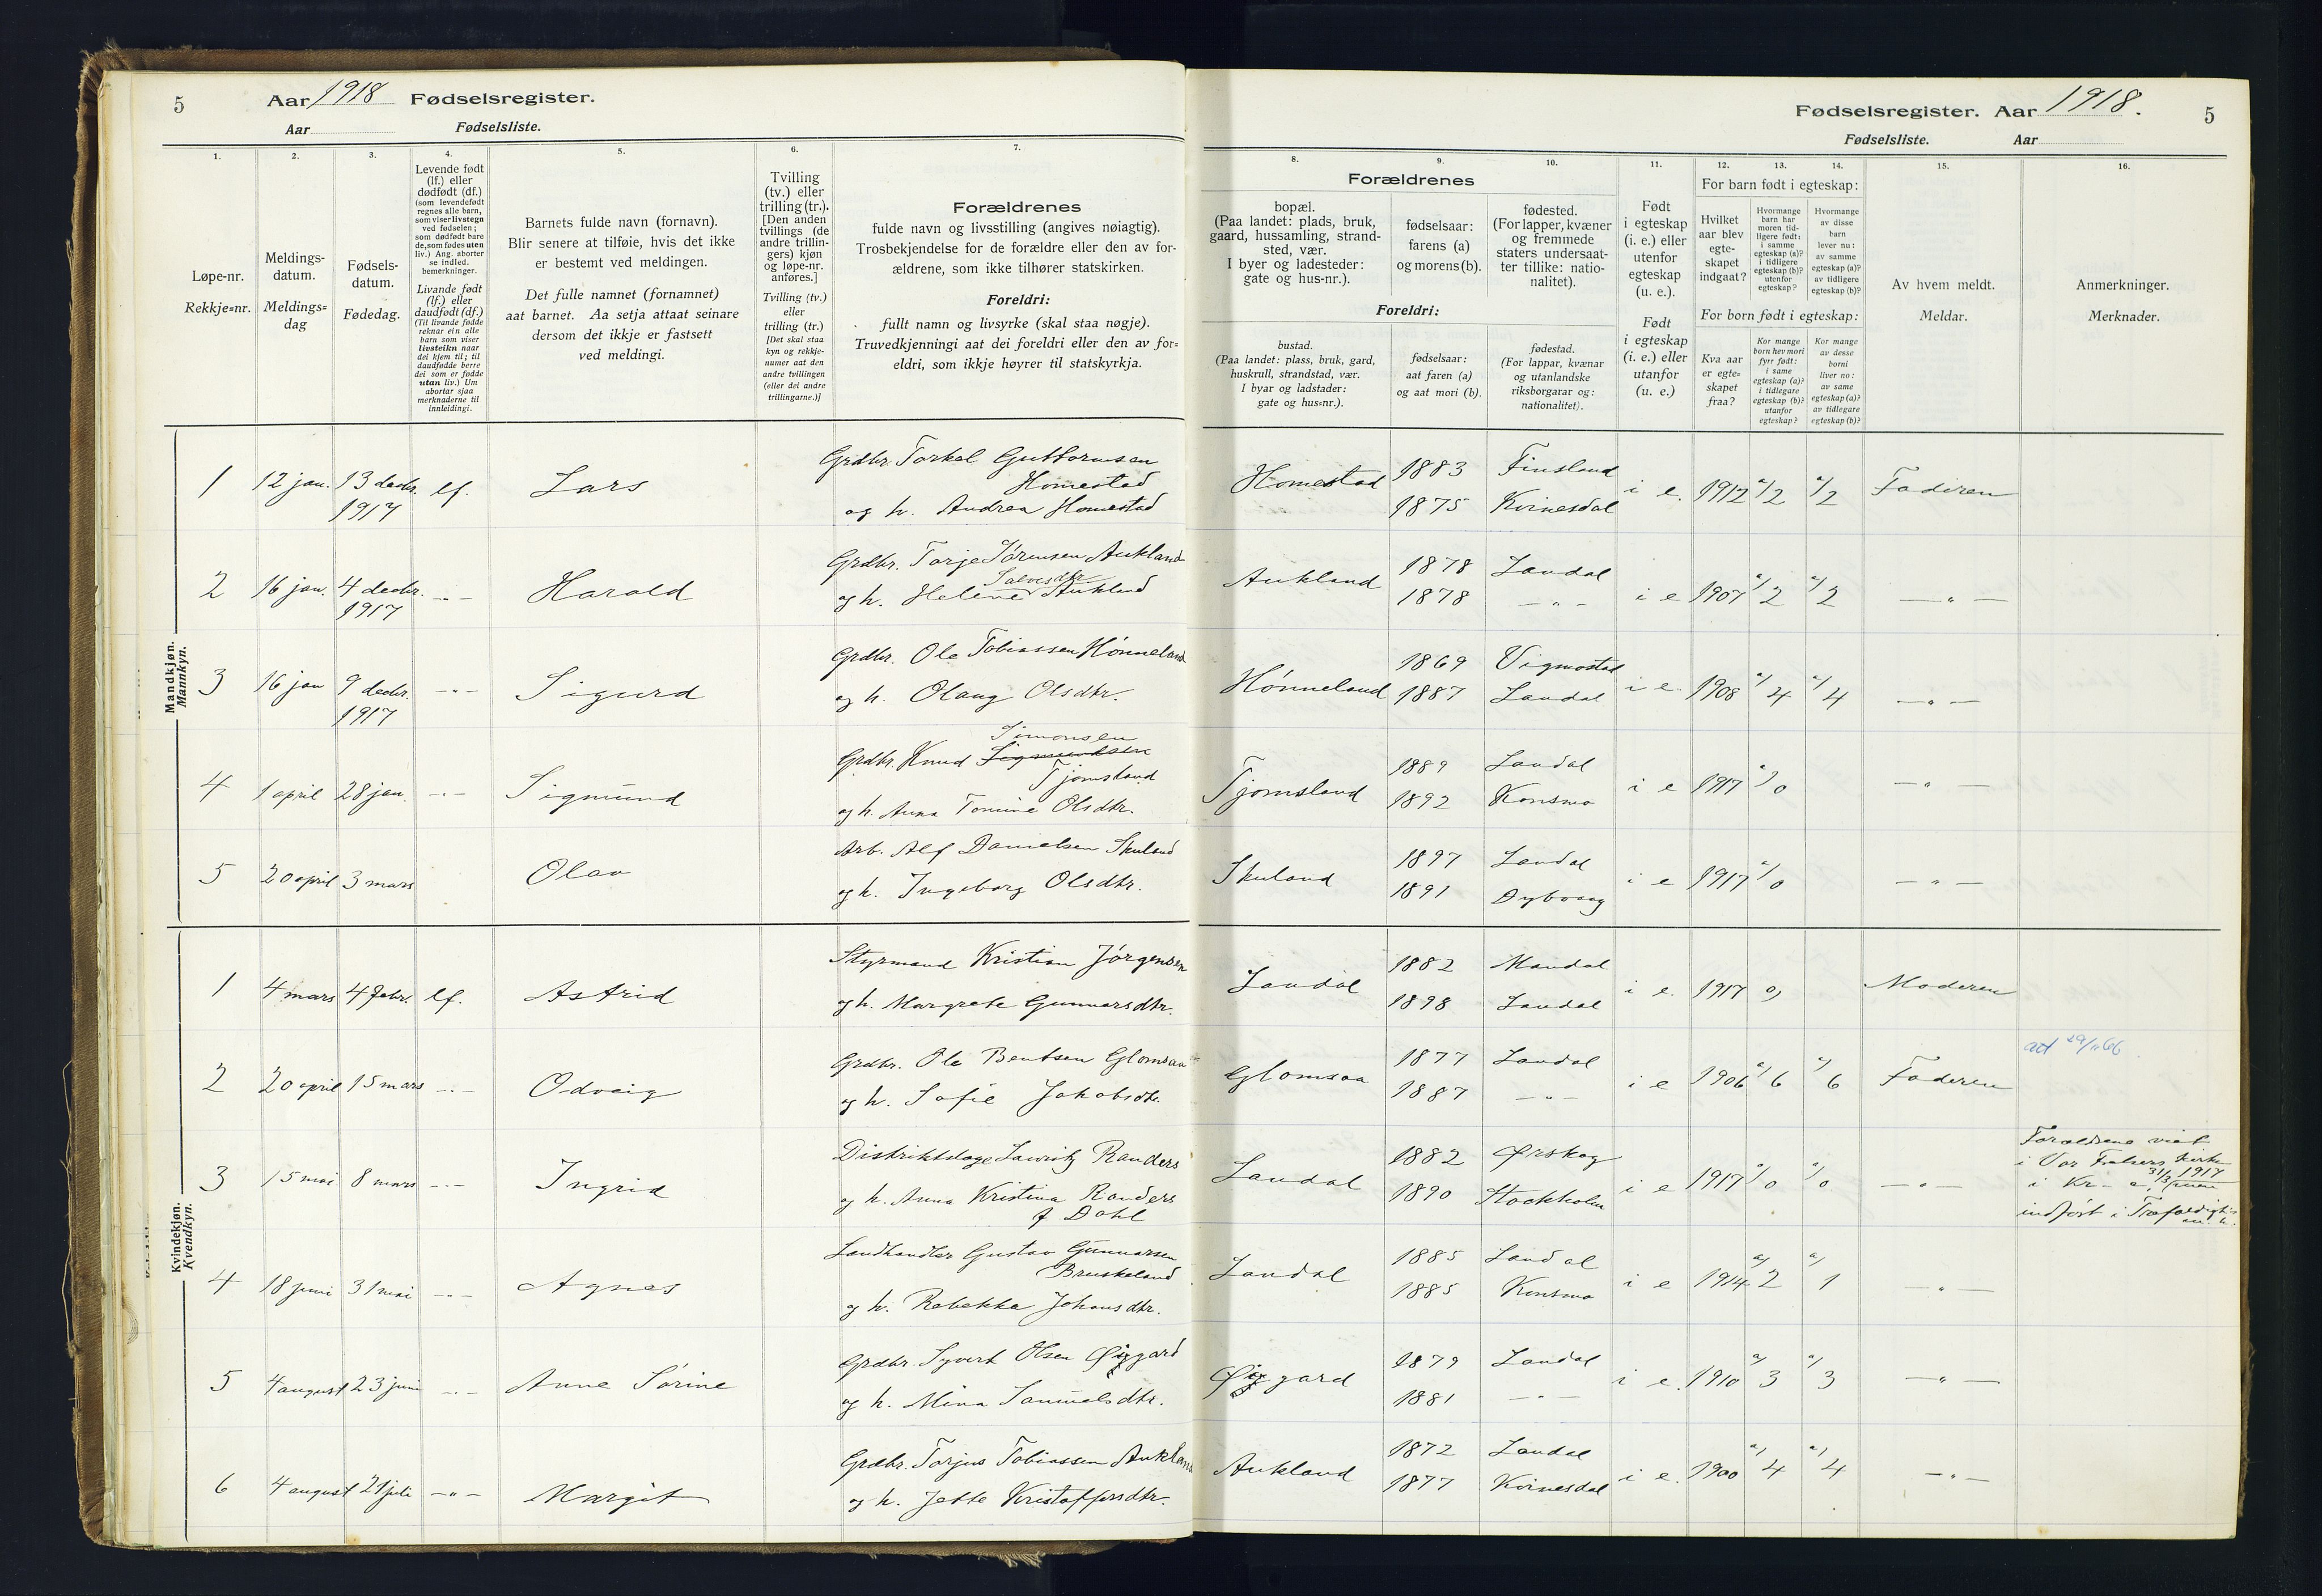 5 Aar 1918 Fødselsregister.
Aar Fødselsliste.
1. 2. 3. 4. 5. 6. 7.
Løpe-nr.
Rekkje=nr.
Meldings-
datum.
Meldings=
dag
Fødsels-
datum.
Fødedag.
Levende født
(lf.) eller
dødfødt (df.)
(som levendefødt
regnes alle barn,
som viser livstegn
ved fødselen;
som dødfødt bare
de, som fødes uten
liv.) Ang. aborter
se indled.
bemerkninger.
Livande født
(lf.) eller
daudfødt (df.)
(Til livande fødde
reknar ein alle
barn som viser
livsteikn naar
dei kjem til; til
daudfødde berre
dei som er fødde
utan liv.) Um
abortar sjaa
merknaderne til
innleidingi.
Barnets fulde navn (fornavn).
Blir senere at tilføie, hvis det ikke
er bestemt ved meldingen.
Det fulle namnet (fornamnet)
aat barnet. Aa setja attaat seinare
dersom det ikkje er fastsett
ved meldingi.
Tvilling
(tv.) eller
trilling (tr.).
[Den anden
tvillings (de
andre trillin-
gers) kjøn
og løpe-nr.
anføres.]
Tvilling (tv.)
eller
trilling (tr.)
[Det skal staa
kyn og rekkje-
numer aat den
andre tvillingen
(eller dei andre
trillingarne.)]
Forældrenes
fulde navn og livsstilling (angives nøiagtig).
Trosbekjendelse for de forældre eller den av for-
ældrene, som ikke tilhører statskirken.
Foreldri:
fullt namn og livsyrke (skal staa nøgje).
Truvedkjenningi aat dei foreldri eller den av for=
eldri, som ikkje høyrer til statskyrkja.
Mandkjøn.
Mannkyn.
1 12 jan. 13 decbr. 1917 lf. Lars
Grdbr. Torkel Guttormsen
Homestad
og h. Andrea Homestad
2 16 jan. 4 decbr. 1917 -"- Harald
Grdbr. Torje Sørensen Aukland
Salvesdtr
og h. Helene Aukland
3 16 jan 9 decbr. 1917 -"- Sigurd
Grdbr. Ole Tobiassen Hønneland
og h. Olaug Olsdtr.
4 1 april 28 jan. -"- Sigmund
Simonsen
Grdbr. Knud Sigmundsen
Tjomsland
og h. Anna Tomine Olsdtr.
5 20 april 3 mars Olav
Arb. Alf Danielsen Skuland
og h. Ingeborg Olsdtr.
Kvindekjøn.
Kvendkyn.
1 4 mars 4 febr. lf. Astrid
Styrmand Kristian Jørgensen
og h. Margrete Gunnarsdtr.
2 20 april 15 mars -"- Odveig
Grdbr. Ole Bentsen Glomsaa
og h. Sofie Jakobsdtr.
3 15 mai 8 mars -"- Ingrid
Distriktslæge Lauritz Randers
og h. Anna Kristina Randers
f Dahl
4 18 juni 31 mai -"- Agnes
Landhandler Gustav Gunnarsen
Bruskeland
og h. Rebekka Johansdtr.
5 4 august 23 juni -"- Anne Sørine
Grdbr. Syvert Olsen Øigard
og h. Mina Samuelsdtr.
6 4 august 21 juli -"- Margit
Grdbr. Torjus Tobiassen Aukland
og h. Jette Kristoffersdtr.
Fødselsregister. Aar 1918. 5
Fødselsliste. Aar
8. 9. 10. 11. 12. 13. 14. 15. 16.
Forældrenes
bopæl.
(Paa landet: plads, bruk,
gaard, hussamling, strand-
sted, vær.
I byer og ladesteder:
gate og hus-nr.).
fødselsaar:
farens (a)
og morens (b).
fødested.
(For lapper, kvæner
og fremmede
staters undersaat-
ter tillike: natio-
nalitet).
Foreldri:
bustad.
(Paa landet: plass, bruk, gard,
huskrull, strandstad, vær.
I byar og ladstader:
gate og hus=nr.).
fødselsaar:
aat faren (a)
og aat mori (b).
fødestad.
(For lappar, kvænar
og utanlandske
riksborgarar og:
nationalitet).
Født
i egteskap
(i. e.) eller
utenfor
egteskap
(u. e.).
Født
i egteskap
(i. e.) eller
utanfor
egteskap
(u. e.)
For barn født i egteskap:
Hvilket
aar blev
egte-
skapet
indgaat?
Hvormange
barn har
moren tid-
ligere født:
i samme
egteskap (a)?
i tidligere
egteskap (b)?
utenfor
egteskap?
Hvormange
av disse
barn
lever nu:
av samme
egteskap (a)?
av tidligere
egteskap (b)?
For born født i egteskap:
Kva aar
er egte=
skapet
fraa?
Kor mange
born hev mori
fyrr født:
i same
egteskap (a)?
i tidlegare
egteskap (b)?
utanfor
egteskap?
Kor mange
av desse
borni
liver no:
av same
egteskap (a)?
av tidlegare
egteskap (b)?
Av hvem meldt.
Meldar.
Anmerkninger.
Merknader.
Homestad 1883 Finsland i e. 1912 a/2 a/2 Faderen
1875 Kvinesdal
Aukland 1878 Laudal i e 1907 a/2 a/2 -"-
1878 -"-
Hønneland 1869 Vigmostad i e 1908 a/4 a/4 -"-
1887 Laudal
Tjomsland 1889 Laudal i e 1917 a/0 -"-
1892 Konsmo
Skuland 1897 Laudal i e 1917 a/0 -"-
1891 Dybvaag
Laudal 1882 Mandal i e. 1917 a) Moderen
1898 Laudal
Glomsaa 1877 Laudal i e 1906 a/6 a/6 Faderen
1887 -"-
att 29/11 66
Laudal 1882 Ørskog i e 1917 a/0 a/0 -"-
1890 Stockholm
Forældrene viet
i Vor Frelsers Kirke
i Kr-a, 31/3 1917
indført i Trefoldigh.
Laudal 1885 Laudal i e 1914 a/2 a/1 -"-
1885 Konsmo
Øigard 1879 Laudal i e. 1910 a/3 a/3 -"-
1881 -"-
Aukland 1872 Laudal i e. 1900 a/4 a/4 -"-
1877 Kvinesdal